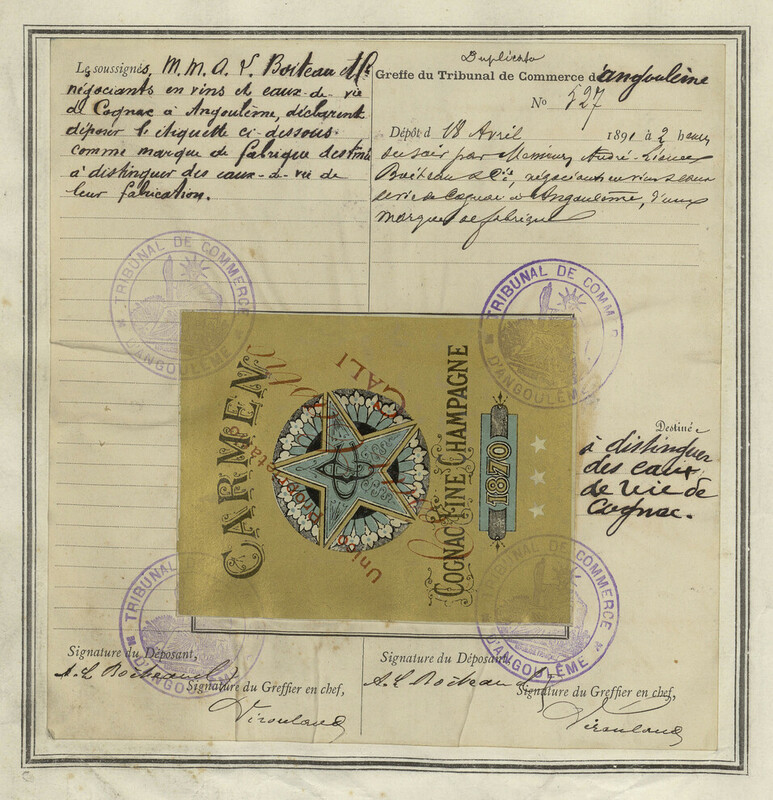 Les soussignés, M.M. A. L. Boiteau & Cie
négociants en vins et eaux-de-vie
de Cognac à Angoulême, déclarent
déposer l'étiquette ci-dessous
comme marque de fabrique destinée
à distinguer des eaux-de-vie de
leur fabrication.
Duplicata
Greffe du Tribunal de Commerce d'angoulême
No 527
Dépôt d 18 Avril 1891 à 2 heures
du soir par Messieurs André-Léonce
Boiteau & Cie, négociants en vins & eaux
de vie de Cognac à Angoulême, d'une
marque de fabrique
TRIBUNAL DE COMMERCE
D'ANGOULÊME
TRIBUNAL DE COMMERCE
D'ANGOULÊME
CARMEN
COGNAC FINE CHAMPAGNE
1870
Unico
CALI
Destiné
à distinguer
des eaux
de vie de
Cognac.
TRIBUNAL DE COMMERCE
D'ANGOULÊME
TRIBUNAL DE COMMERCE
D'ANGOULÊME
Signature du Déposant,
A. L. Boiteau &
Signature du Greffier en chef,
Signature du Déposant
A. L. Boiteau &
Signature du Greffier en chef,